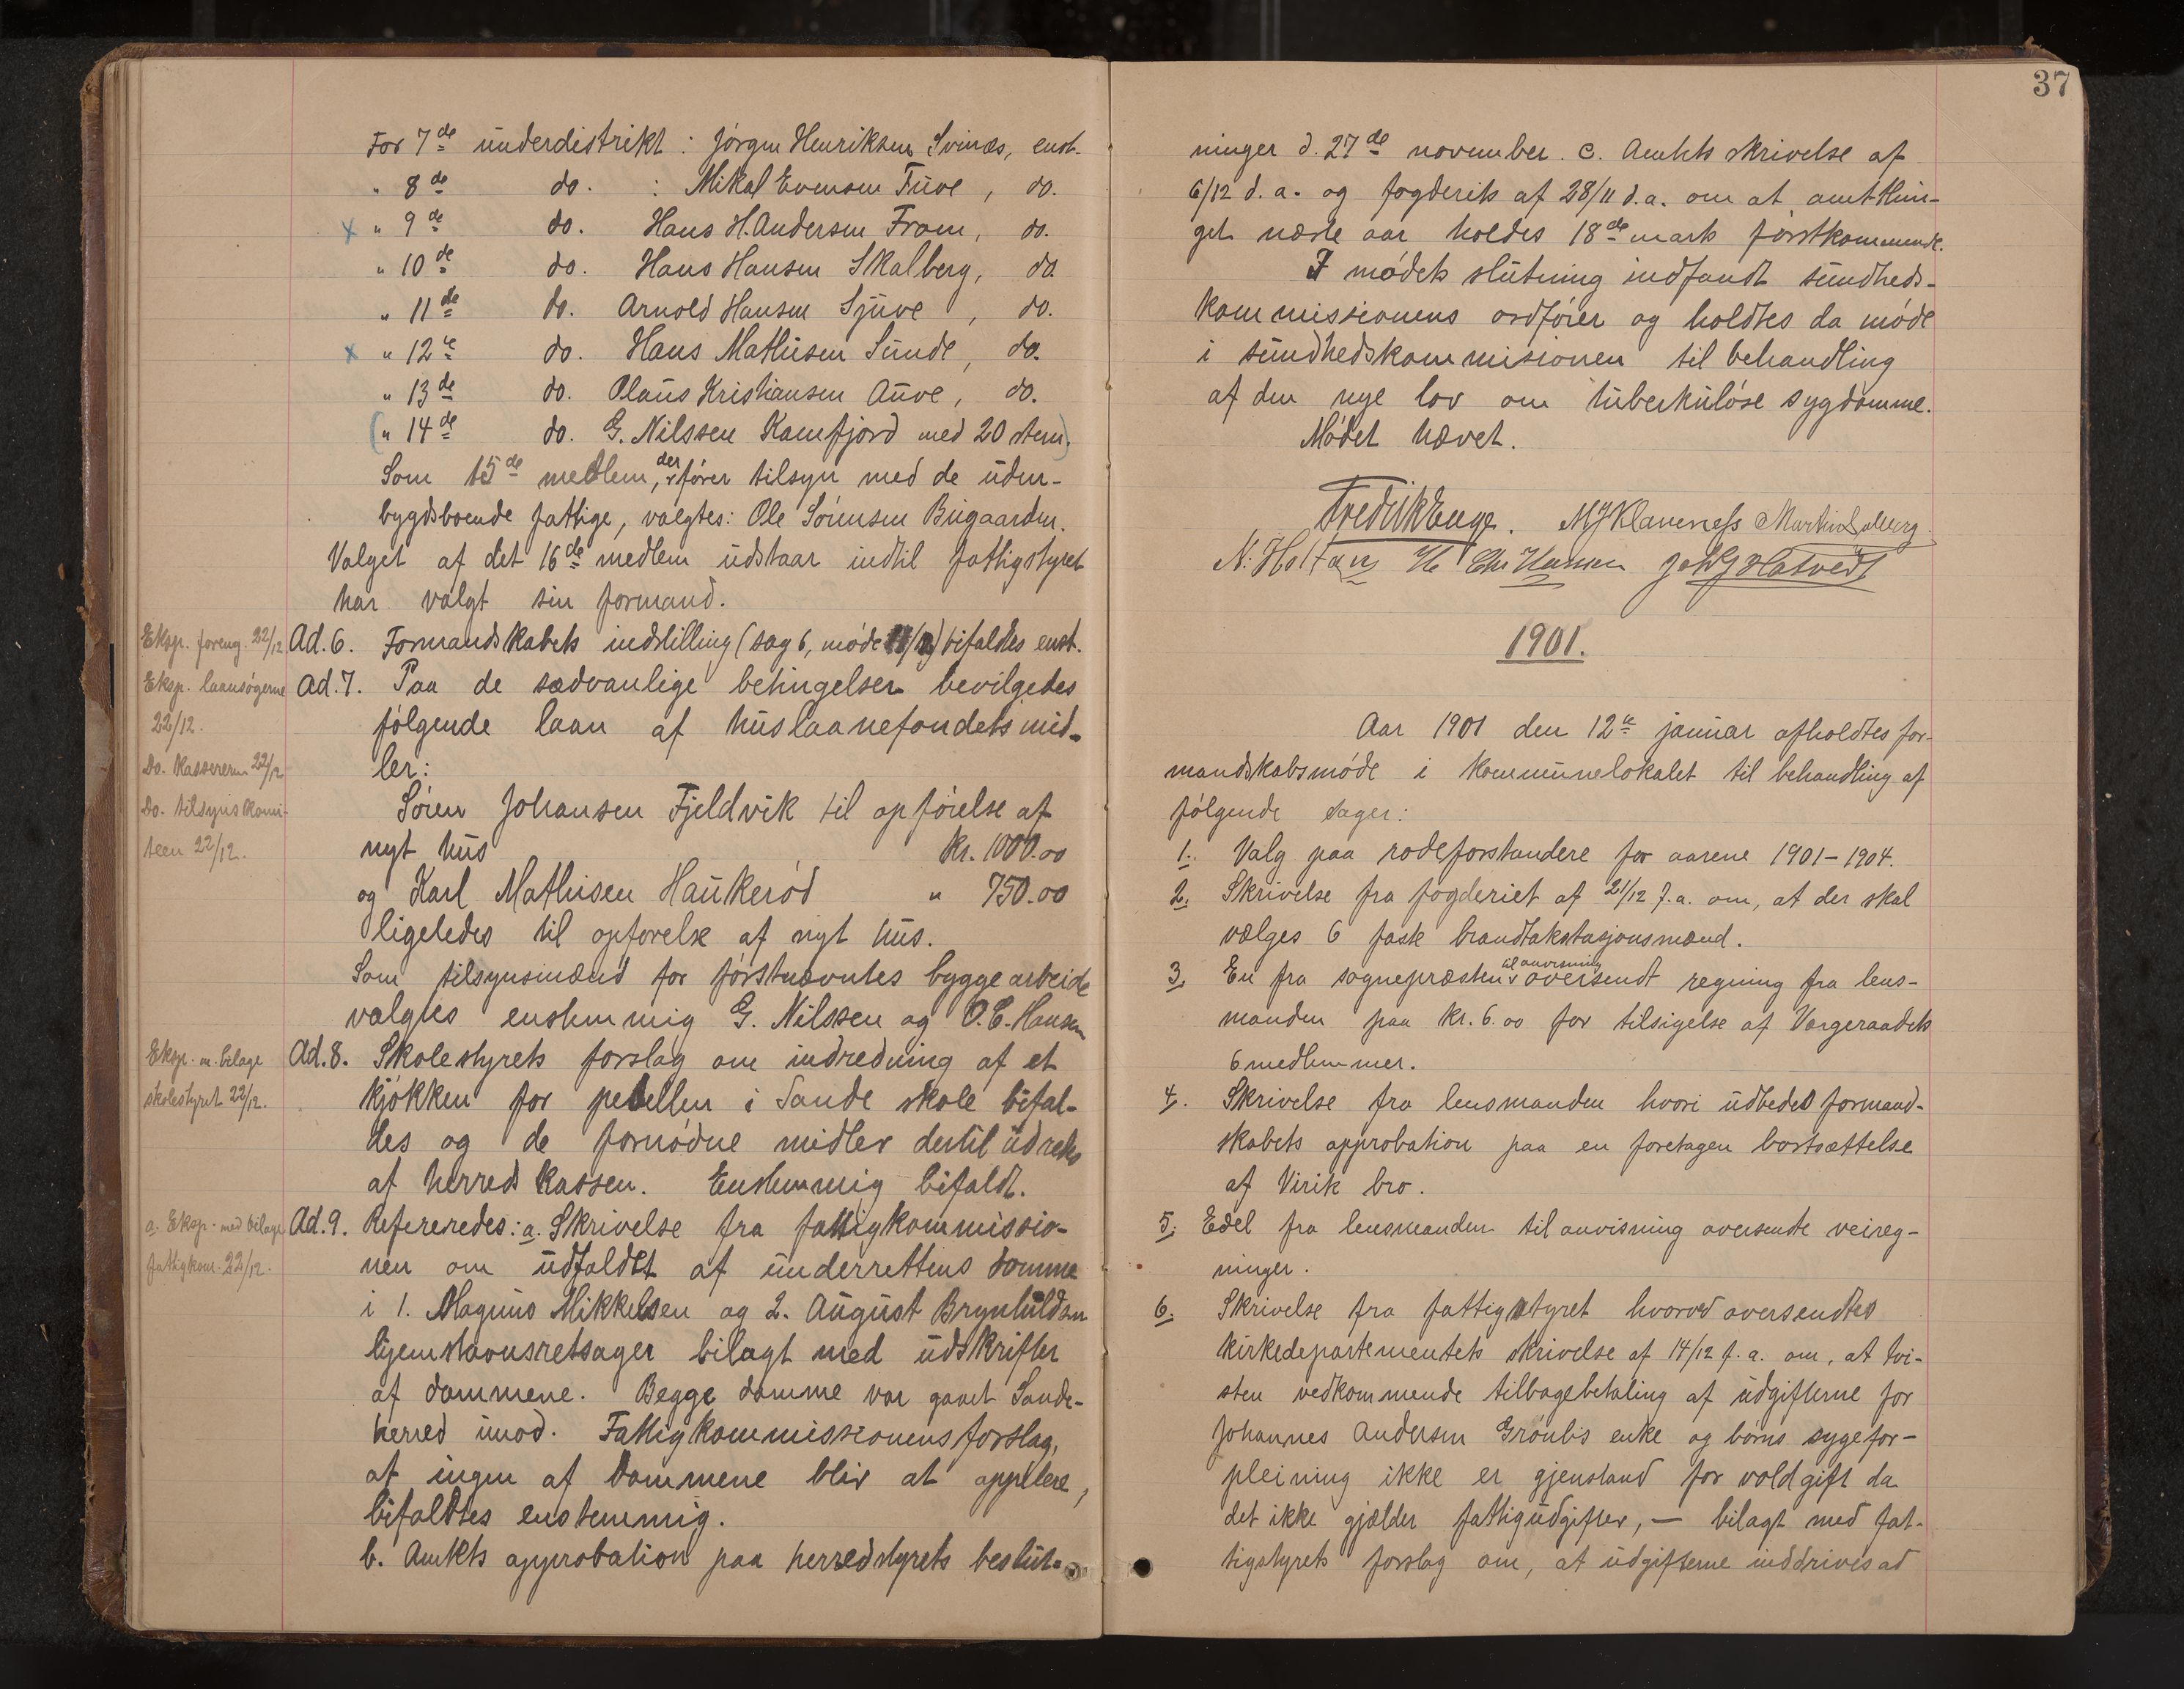 For 7de underdistrikt : Jørgen Henriksen Svinæs, enst.
" 8de do. : Mikal Evensen Tuve, do.
x " 9de do. Hans H. Andersen From, do.
" 10de do. Hans Hansen Skalberg, do.
" 11de do. Arnold Hansen Sjuve, do.
x " 12te do. Hans Mathisen Sunde, do.
" 13de do. Olaus Kristiansen Auve, do.
(" 14de do. G. Nilssen Kamfjord med 20 stem.)
Som 15de medlem, der fører tilsyn med de uden-
bygdsboende fattige, valgtes: Ole Sørensen Bugaarden.
Valget af det 16de medlem udstaar indtil fattigstyret
har valgt sin formand.
Eksp. foreng. 22/12 Ad. 6. Formandskabets indstilling (sag 6, møde) bifaldtes enst.
Eksp. laansøgerne Ad. 7. Paa de sædvanlige betingelser bevilgedes
22/12. følgende laan af huslaanefondets mid-
Do. kassereren 22/12 ler:
Do. tilsyns komi- Søren Johansen Fjeldvik til opførelse af
teen 22/12. nyt hus kr. 1000.00
og Karl Mathisen Haukerød " 750.00
ligeledes til opførelse af nyt hus.
Som tilsynsmænd for førstnævntes bygge arbeide
valgtes enstemmig G. Nilssen og O. E. Hansen
Eksp. m. bilage Ad. 8. Skolestyrets forslag om indredning af et
skolestyret 22/12. kjøkken for pedellen i Sande skole bifal-
des og de fornødne midler dertil udredes
af herredskassen. Enstemmig bifaldt.
a. Eksp. med bilage Ad. 9. Refereredes: a. Skrivelse fra fattigkommissio-
fattigkom. 22/12. nen om udfaldet af underrettens domme
i 1. Magnus Mikkelsen og 2. August Brynhildsen
hjemstavnsretsager bilagt med udskrifter
af dommene. Begge domme var gaaet Sande-
herred imod. Fattigkommissionens forslag,
at ingen af dommene blir at appelere,
bifaldtes enstemmig.
b. Amtets approbation paa herredstyrets beslut-
37
ninger d. 27de november. c. Amtets skrivelse af
6/12 d. a. og fogderiets af 28/11 d. a. om at amtthin-
get næste aar holdes 18de marts førstkommende.
I mødets slutning indfandt sundheds-
kommissionens ordfører og holdtes da møde
i sundhedskommisionen til behandling
af den nye lov om tuberkuløse sygdomme.
Mødet hævet.
Fredrik Enge. M J Klaveness Martin Solberg.
N. Holtan H Chr Hansen Joh G Hotvedt
1901.
Aar 1901 den 12te januar afholdtes for-
mandskabsmøde i kommunelokalet til behandling af
følgende sager:
1. Valg paa rodeforstandere for aarene 1901-1904.
2. Skrivelse fra fogderiet af 21/12 f. a. om, at der skal
vælges 6 faste brandtakstasjonsmænd.
3. En fra sognepræsten til anvisning oversendt regning fra lens-
manden paa kr. 6.00 for tilsigelse af Vergeraadets
6 medlemmer.
4. Skrivelse fra lensmanden hvori udbedes formand-
skabets approbation paa en foretagen bortsættelse
af Virik bro.
5. Edel fra lensmanden til anvisning oversendte veireg-
ninger.
6. Skrivelse fra fattigstyret hvorved oversendtes
kirkedepartementets skrivelse af 14/12 f. a. om, at tvi-
sten vedkommende tilbagebetaling af udgifterne for
Johannes Andersen Grønlis enke og børns sygefor-
pleining ikke er gjenstand for voldgift da
det ikke gjælder fattigudgifter, — bilagt med fat-
tigstyrets forslag om, at udgifterne inddrives ad